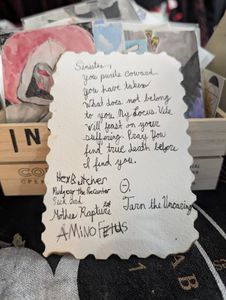 Sinister,
you purile coward
you have taken
what does not belong
to you. My Locus Vile
will feast on your
suffering. Pray You
find true death before
I find you.
Hex Butcher
the
Sick Dad
Mother Rapture
Θ.
Tarn the Uncaring
AMINOFETUS
IN
CO
A B